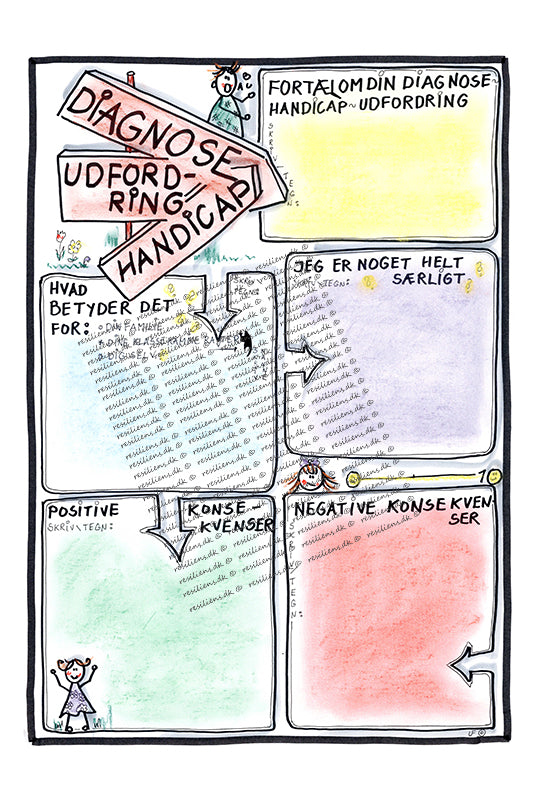 DIAGNOSE
UDFORD-
RING
HANDICAP
FORTÆL OM DIN DIAGNOSE~
HANDICAP~UDFORDRING
SKRIV/TEGN:
HVAD
BETYDER DET
FOR:
DIN FAMILIE
DINE KLASSEKAMMERATER
DIG SELV
SKRIV/
TEGN:
JEG ER NOGET HELT
SÆRLIGT
SKRIV/TEGN:
10
POSITIVE KONSE
KVENSER
SKRIV/TEGN:
NEGATIVE KONSEKVEN-
SER
SKRIV/TEGN:
resiliens.dk ©